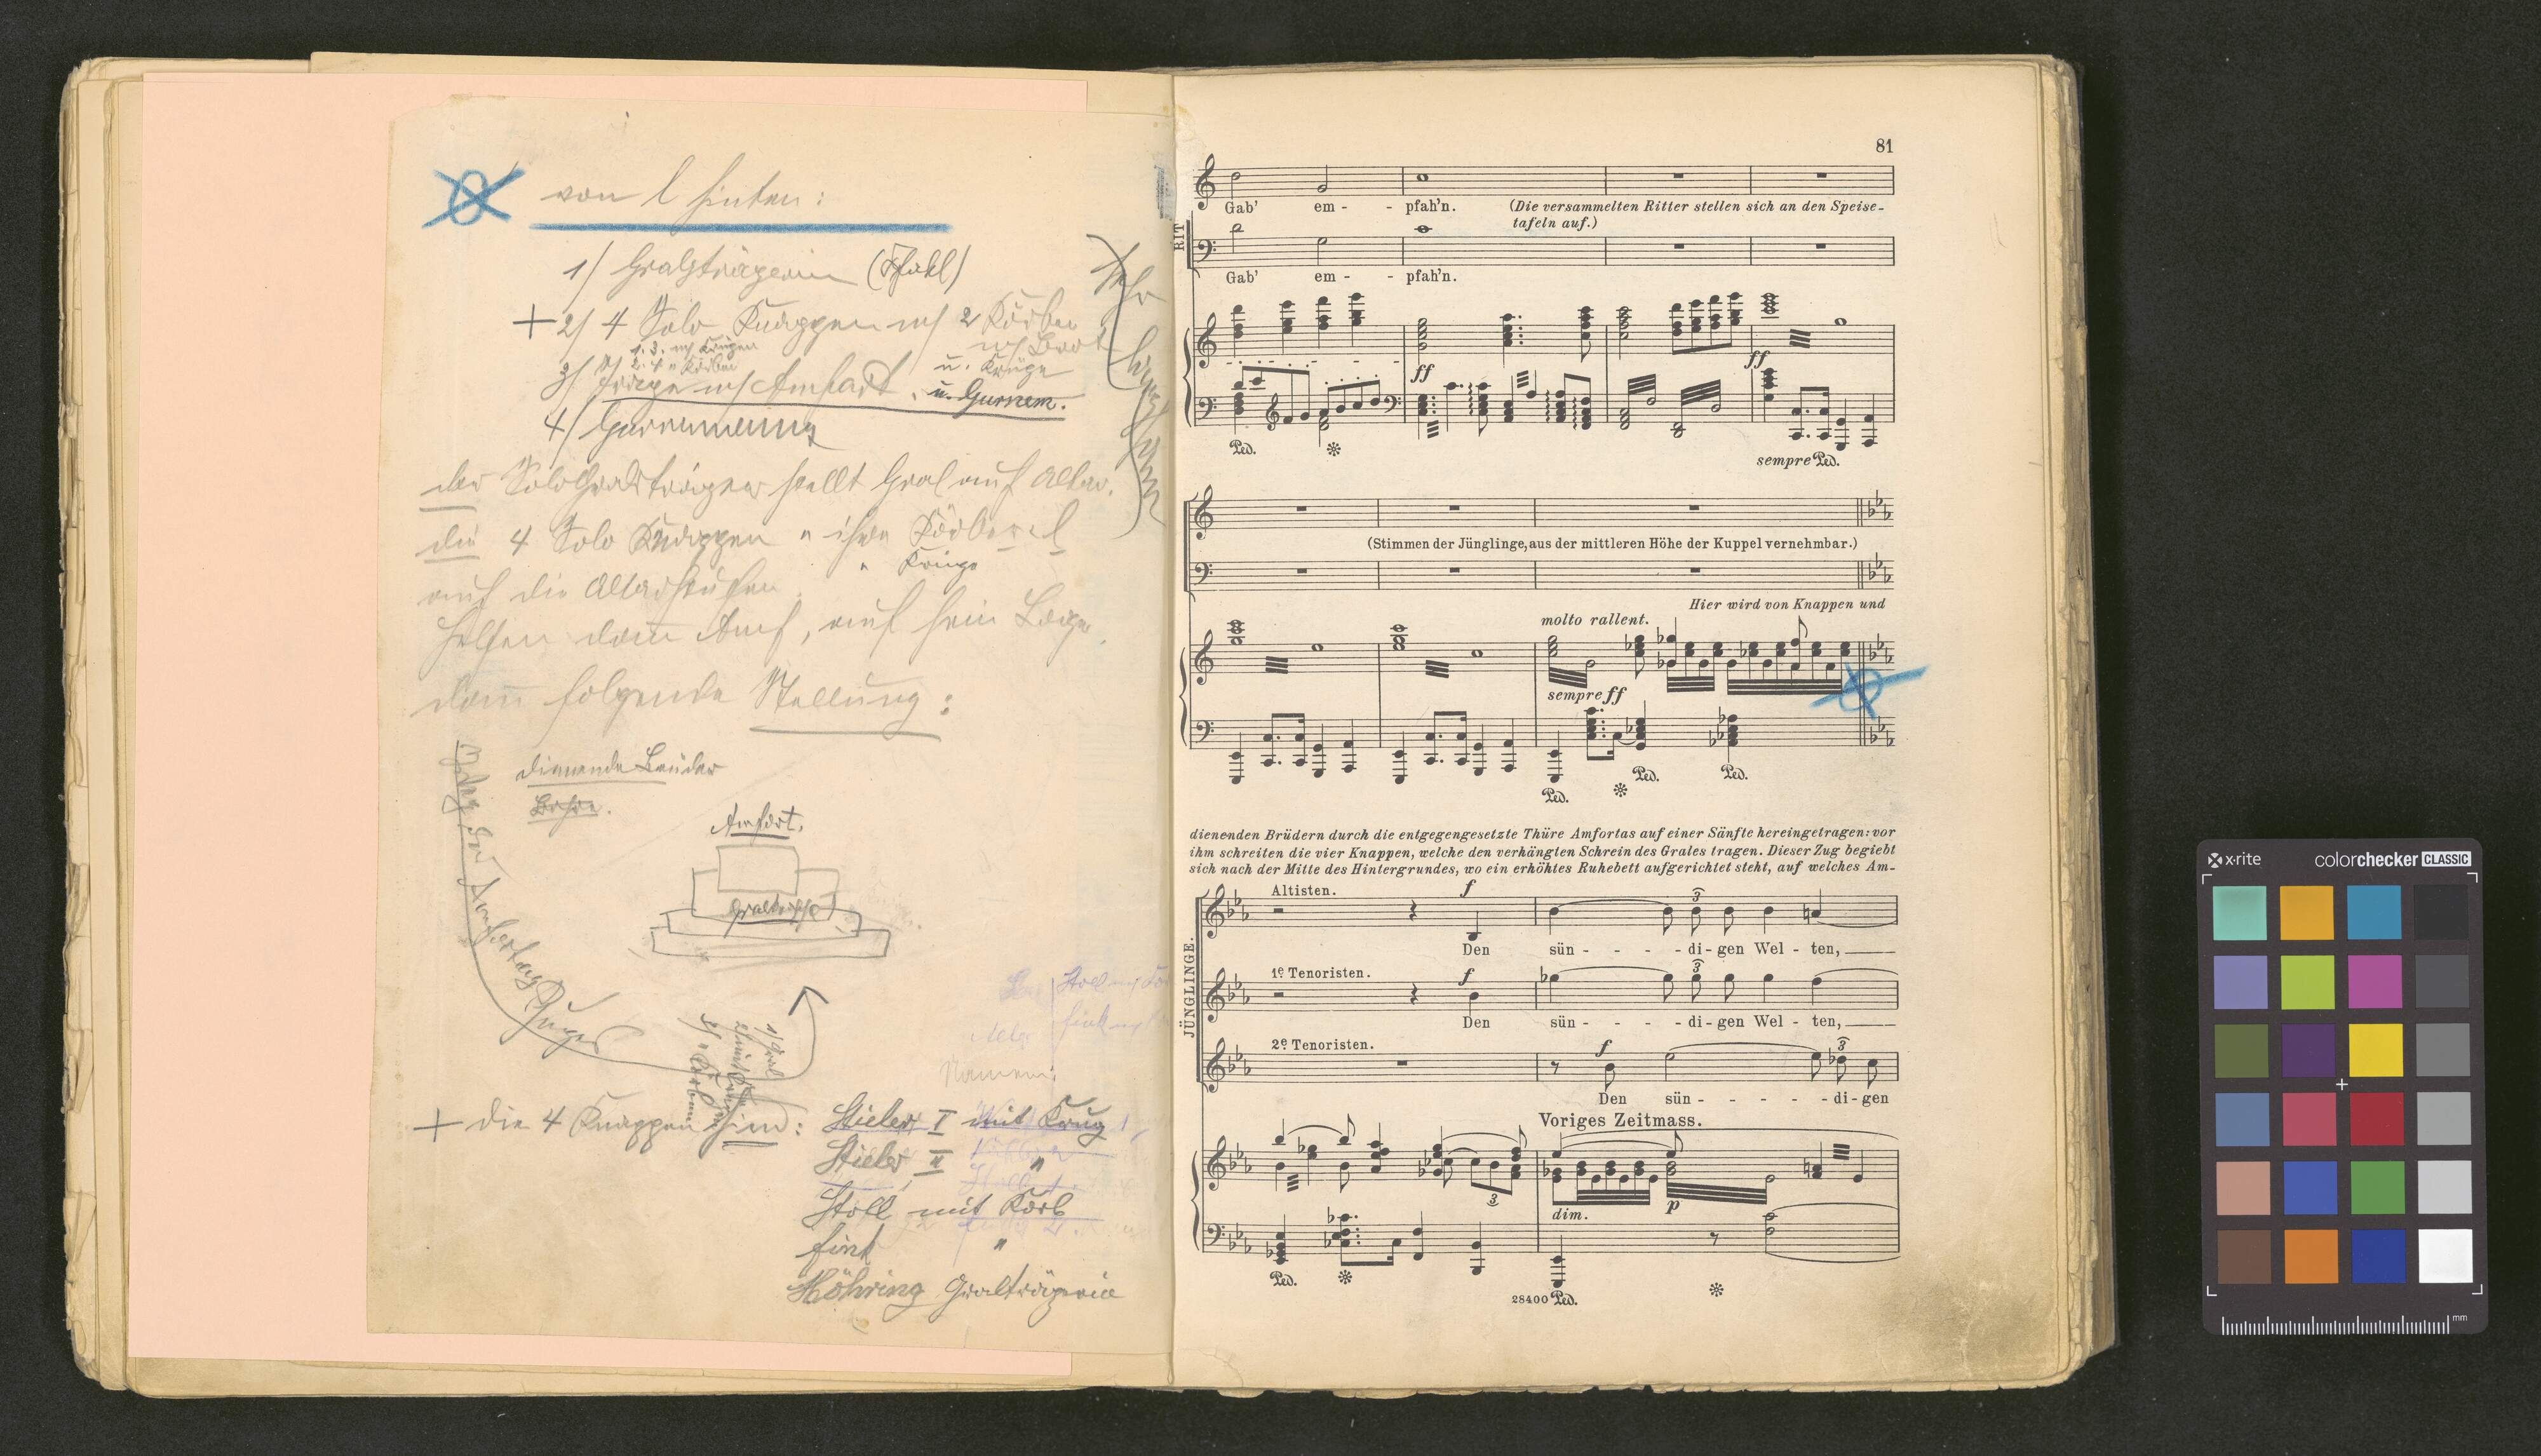 von l hinten:
1/ Gralsträgerin (Stahl)
+ 2/ 4 Solo Knappen m/ 2 Körbe
m/ Brot
u. Krüge
1. 3. m/ Krügen
2. 4 " Körbe
3/ Träge m/ Amfort. u. Gurnem.
4/ Gurnemanz
der Solo Gralsträger stellt Gral auf Altar.
die 4 Solo Knappen " ihre Körbe r. l
" Krüge
auf die Altarstufen
helfen dann Amf, auf sein Lager.
dann folgende Stellung:
dienende Brüder
Bahre.
Amfort.
Weg des Amfortas Zuges
1/ Gral
+ die 4 Knappen sind:
Namen:
Stieler I mit Krug
Stieler II "
Stoll mit Korb
Fink "
Möhring Gralträgerin
81
RIT
Gab' em - - pfah'n. (Die versammelten Ritter stellen sich an den Speise-
tafeln auf.)
Gab' em - - pfah'n.
ff
ff
Ped.
sempre Ped.
(Stimmen der Jünglinge, aus der mittleren Höhe der Kuppel vernehmbar.)
Hier wird von Knappen und
molto rallent.
sempre ff
Ped. Ped. Ped.
dienenden Brüdern durch die entgegengesetzte Thüre Amfortas auf einer Sänfte hereingetragen: vor
ihm schreiten die vier Knappen, welche den verhängten Schrein des Grales tragen. Dieser Zug begiebt
sich nach der Mitte des Hintergrundes, wo ein erhöhtes Ruhebett aufgerichtet steht, auf welches Am-
JÜNGLINGE.
Altisten. f 3
Den sün - - - - di - gen Wel - ten,
1e Tenoristen. f 3
Den sün - - - - di - gen Wel - ten,
2e Tenoristen. f 3
Den sün - - - - - di - gen
Voriges Zeitmass.
3
dim. p
Ped.
28400 Ped.
x·rite colorchecker CLASSIC
mm